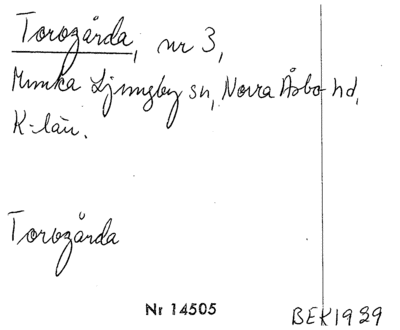 Torogårda, nr 3,
Munka Ljungby sn, Norra Åsbo hd,
K-län.
Torogårda
Nr 14505
BEK1929